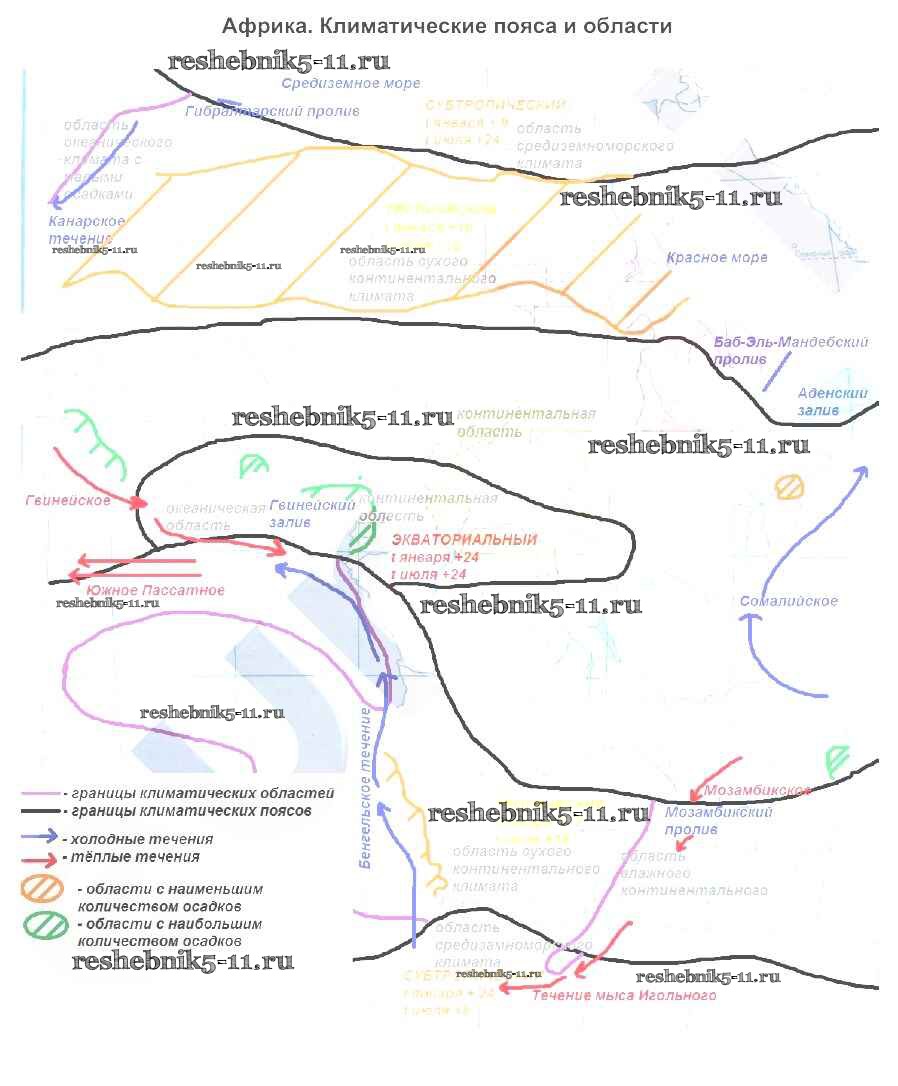 Африка. Климатические пояса и области
reshebnik5-11.ru
Средиземное море
Гибралтарский пролив
СУБТРОПИЧЕСКИЙ
t января + 8
t июля +24
область
средиземноморского
климата
область
океанического
климата с
малыми
осадками
reshebnik5-11.ru
Канарское
течение
reshebnik5-11.ru
reshebnik5-11.ru
reshebnik5-11.ru
область сухого
континентального
климата
Красное море
Баб-Эль-Мандебский
пролив
Аденский
залив
reshebnik5-11.ru
континентальная
область
reshebnik5-11.ru
Гвинейское
океаническая
область
Гвинейский
залив
континентальная
область
ЭКВАТОРИАЛЬНЫЙ
t января +24
t июля +24
Южное Пассатное
reshebnik5-11.ru
reshebnik5-11.ru
Сомалийское
reshebnik5-11.ru
Бенгельское течение
- границы климатических областей
- границы климатических поясов
- холодные течения
- тёплые течения
- области с наименьшим
количеством осадков
- области с наибольшим
количеством осадков
reshebnik5-11.ru
reshebnik5-11.ru
Мозамбикское
Мозамбикский
пролив
область сухого
континентального
климата
область
влажного
континентального
область
средиземноморского
климата
reshebnik5-11.ru
reshebnik5-11.ru
t января + 24
Течение мыса Игольного